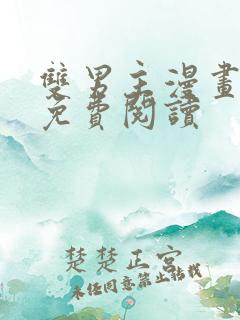 雙男主漫畫
免費閱讀
楚楚正宮
未经同意禁止转载